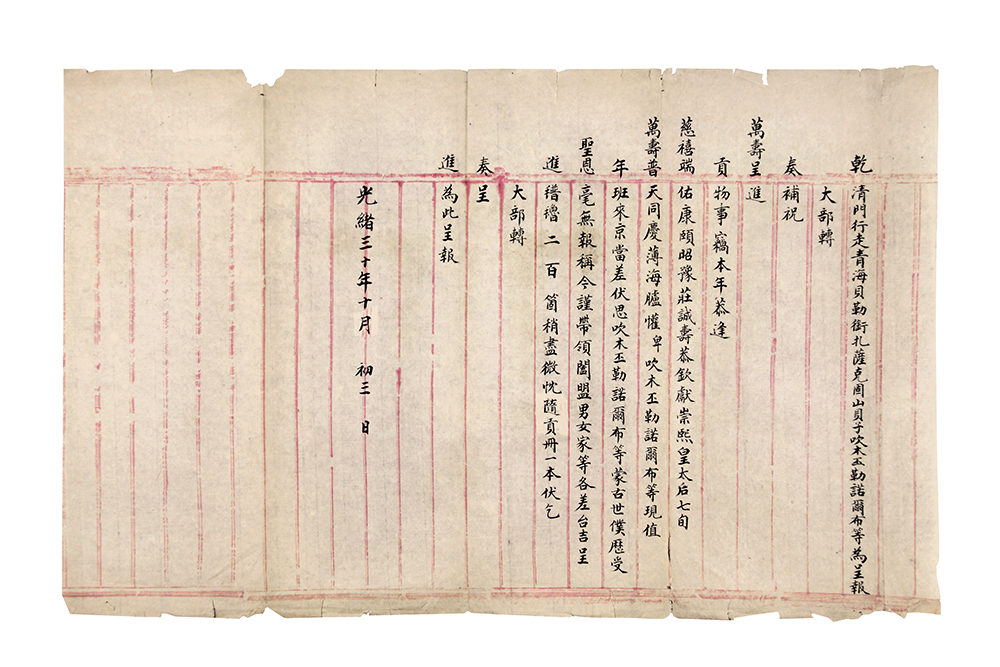 乾清門行走青海貝勒銜扎薩克固山貝子吹木丕勒諾爾布等為呈報
大部轉
奏補祝
萬壽呈進
貢物事竊本年恭逢
慈禧端佑康頤昭豫莊誠壽恭欽獻崇熙皇太后七旬
萬壽普天同慶薄海臚懽卑吹木丕勒諾爾布等現值
年班來京當差伏思吹木丕勒諾爾布等蒙古世僕歷受
聖恩毫無報稱今謹帶領闔盟男女家等各差台吉呈
進穭二百箇稍盡微忱隨貢冊一本伏乞
大部轉
奏呈
進為此呈報
光緒三十年十月初三日